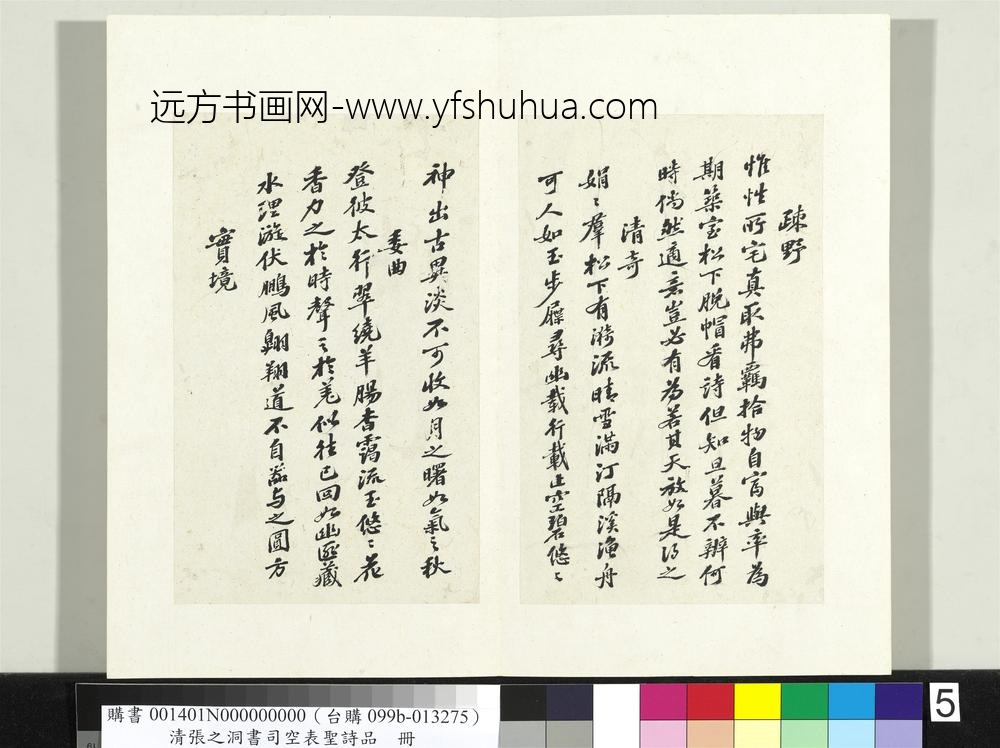 远方书画网-www.yfshuhua.com
疎野
惟性所宅真取弗羈拾物自富與率為
期築室松下脱帽看詩但知旦暮不辨何
時倘然適意豈必有為若其天放如是得之
清奇
娟〻羣松下有漪流晴雪滿汀隔溪漁舟
可人如玉步屧尋幽載行載止空碧悠〻
神出古異淡不可收如月之曙如氣之秋
委曲
登彼太行翠繞羊腸杳靄流玉悠〻花
香力之於時聲之於羌似往已回如幽匪藏
水理漩伏鵬風翺翔道不自器与之圓方
實境
購書 001401N000000000（台購 099b-013275）
清張之洞書司空表聖詩品　冊
5